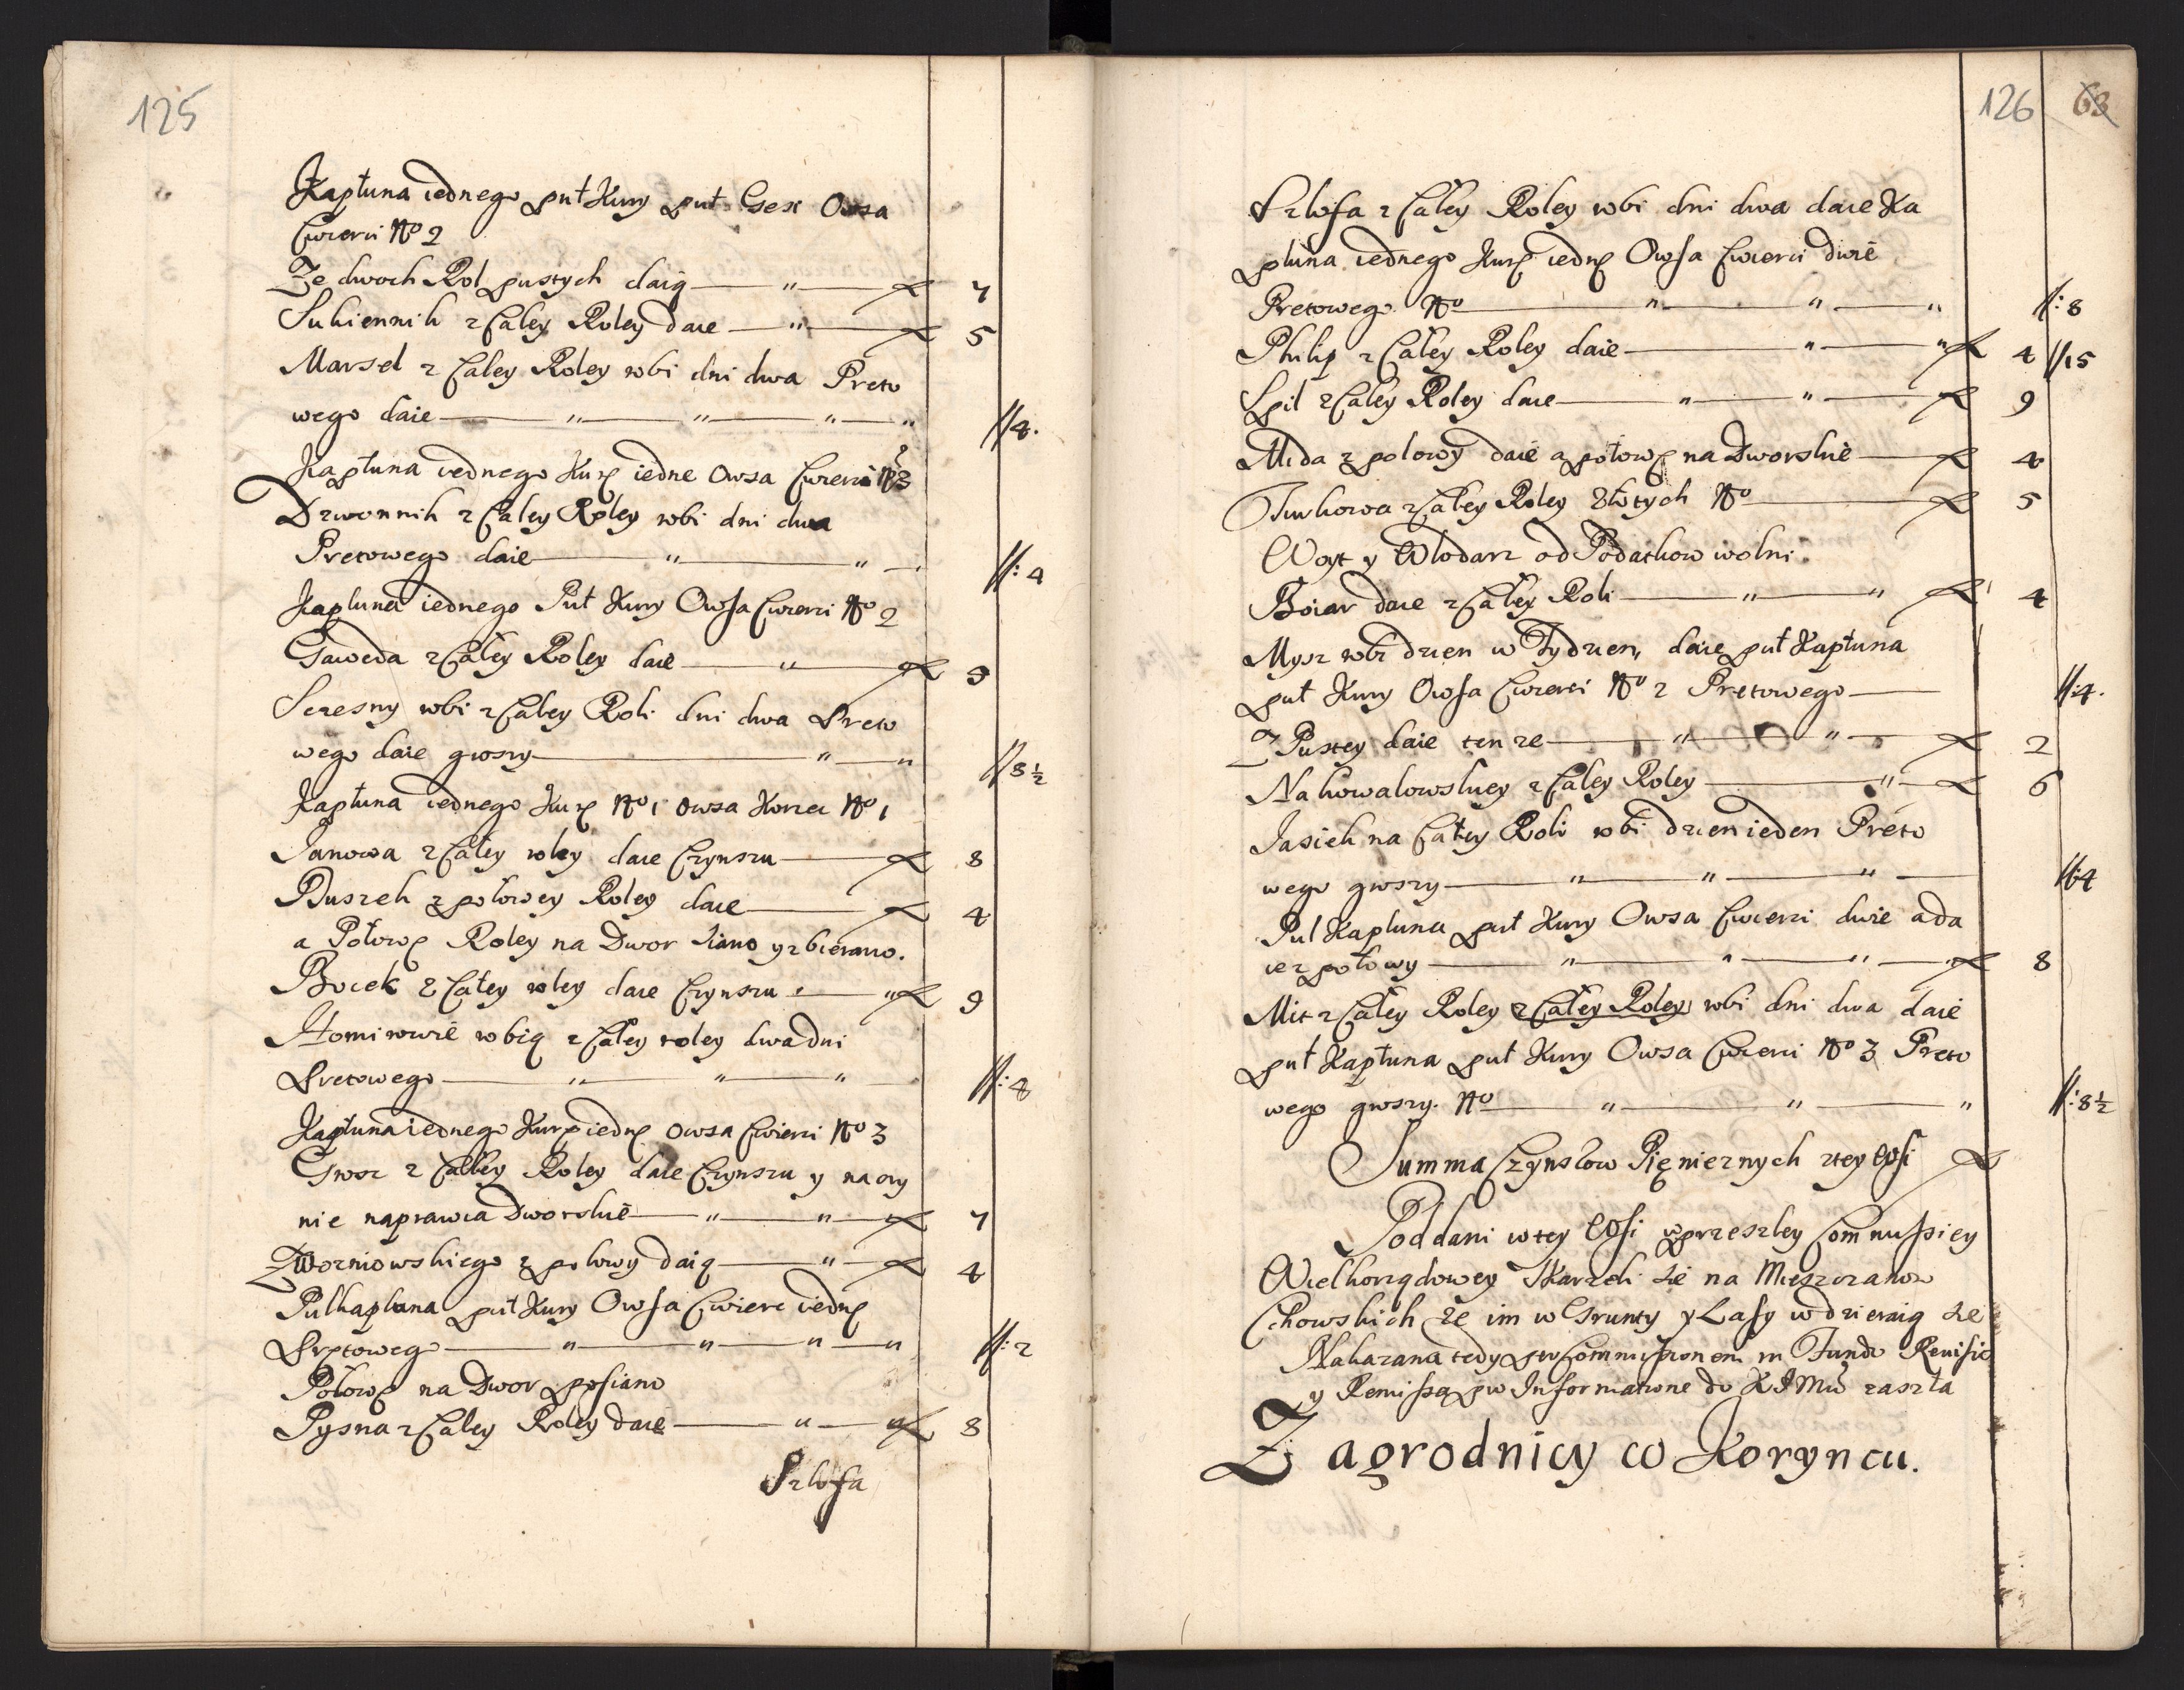 125
Kapłuna iednego puł Kury puł Gesi Owsa
Cwierci No 2
Ze dwoch Rol pustych daią — " — 7
Sukiennik z Całey Roley daie — " — 5
Marsel z Całey Roley robi dni dwa Preto
wego daie — " — " — " — " //4.
Kapłuna iednego Kurę iedne Owsa Cwierci No 3
Dzwonnik z Całey Roley robi dni dwa
Pretowego daie — " — " — //: 4
Kapluna iednego Puł Kury Owsa Cwierci No 2
Gaweda z Całey Roley daie — " — 9
Sczesny robi z Całey Roli dni dwa Preto
wego daie groszy — " — " //8½
Kapłuna iednego Kurę No 1 Owsa Korzec No 1
Janowa z Całey roley daie Czynszu — 8
Duszek z połowey Roley daie — 4
a Połowę Roley na Dwor siano y zbierano.
Bocek z Całey roley daie Czynszu — " 9
Homirowie robią z Całey roley dwa dni
Pretowego — " — " — " — //: 8
Kapłuna iednego Kurę iednę Owsa Cwierci No 3
Grosz z Całley Roley daie Czynszu y naczy
nie naprawia Dworskie — " — " — 7
Zworniowskiego z polowy daią — " — 4
Pul kapluna puł Kury Owsa Cwierc iednę
Prętowego — " — " — " — " //: 2
Połowę na Dwor posiano
Pysna z Całey Roley daie — " — " 8
Szlosa
126 63
Szlosa z Całey Roley robi dni dwa daie Ka
płuna iednego Kurę iednę Owsa Cwierci dwie
Pretowego No — " — " — " //: 8
Philip z Całey Roley daie — " — " 4 //15
Spil z Całey Roley daie — " — " — 9
Mida z polowy daie a połowę na Dworskie — 4
Turkowa z Całey Roley Złotych No — 5
Woyt y Wlodarz od Podatkow wolni.
Boiar daie z Całey Roli — " — " 4
Mysz robi dzien w Tydzien, daie puł Kapłuna
puł Kury Owsa Cwierci No 2 Pretowego — //:4.
Z Pustey daie tenze — " — " — 2
Na kowalowskiey z Całey Roley — " — 6
Jasiek na Całey Roli robi dzien ieden Preto
wego groszy — " — " — " — //:4
Pul Kapluna puł Kury Owsa Cwierci dwie a da
ie z połowy — " — " — " — " 8
Mit z Całey Roley z Całey Roley robi dni dwa daie
puł Kapłuna puł Kury Owsa Cwierci No 3 Preto
wego groszy. No — " — " — " //: 8½
Summa Czynszow Pięnieznych z tey Wsi
Poddani w tey Wsi w przeszłey Commissiey
Wielkorządowey Skarzeli sie na Mieszczanow
Chowskich ze im w Grunty y Lasy wdzieraią sie
Nakazana tedy per Commissionem in Fundo Reuisio
y Remissa pro Informatione do K J Mci zaszła
Zagrodnicy w Koryncu.